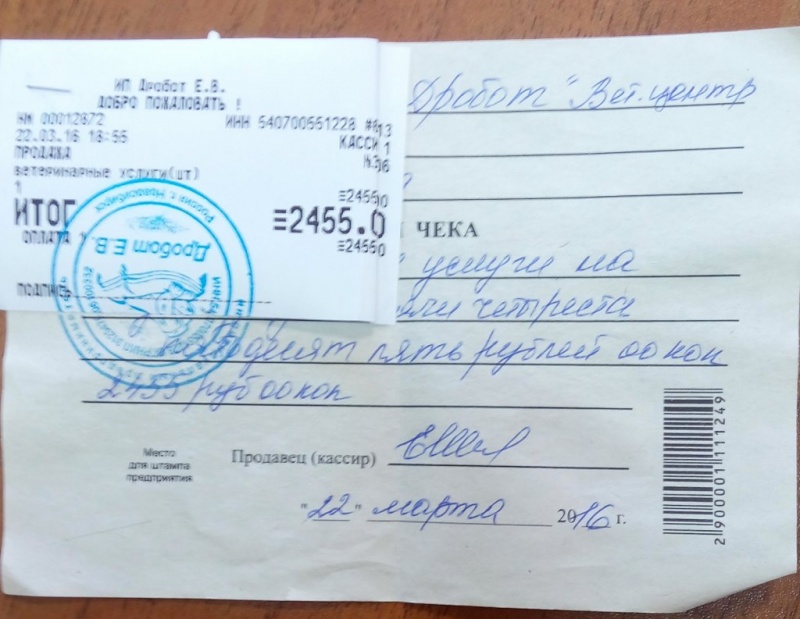 ИП Дробот Е.В.
ДОБРО ПОЖАЛОВАТЬ !
НМ 00012872 ИНН 540700551228 #613
22.03.16 18:55 КАССИ 1
ПРОДАЖА №36
ветеринарные услуги(шт)
1 ≡2455.0
ИТОГ ≡2455.0
ОПЛАТА ≡2455.0
ПОДПИСЬ
Россия г. Новосибирск
Дробот Е.В.
Дробот "Вет.центр
ЧЕКА
услуги на
четыреста
пятьдесят пять рублей 00 коп
2455 руб 00 коп
Место
для штампа
предприятия
Продавец (кассир)
"22" марта 2016 г.
2 900001 111249